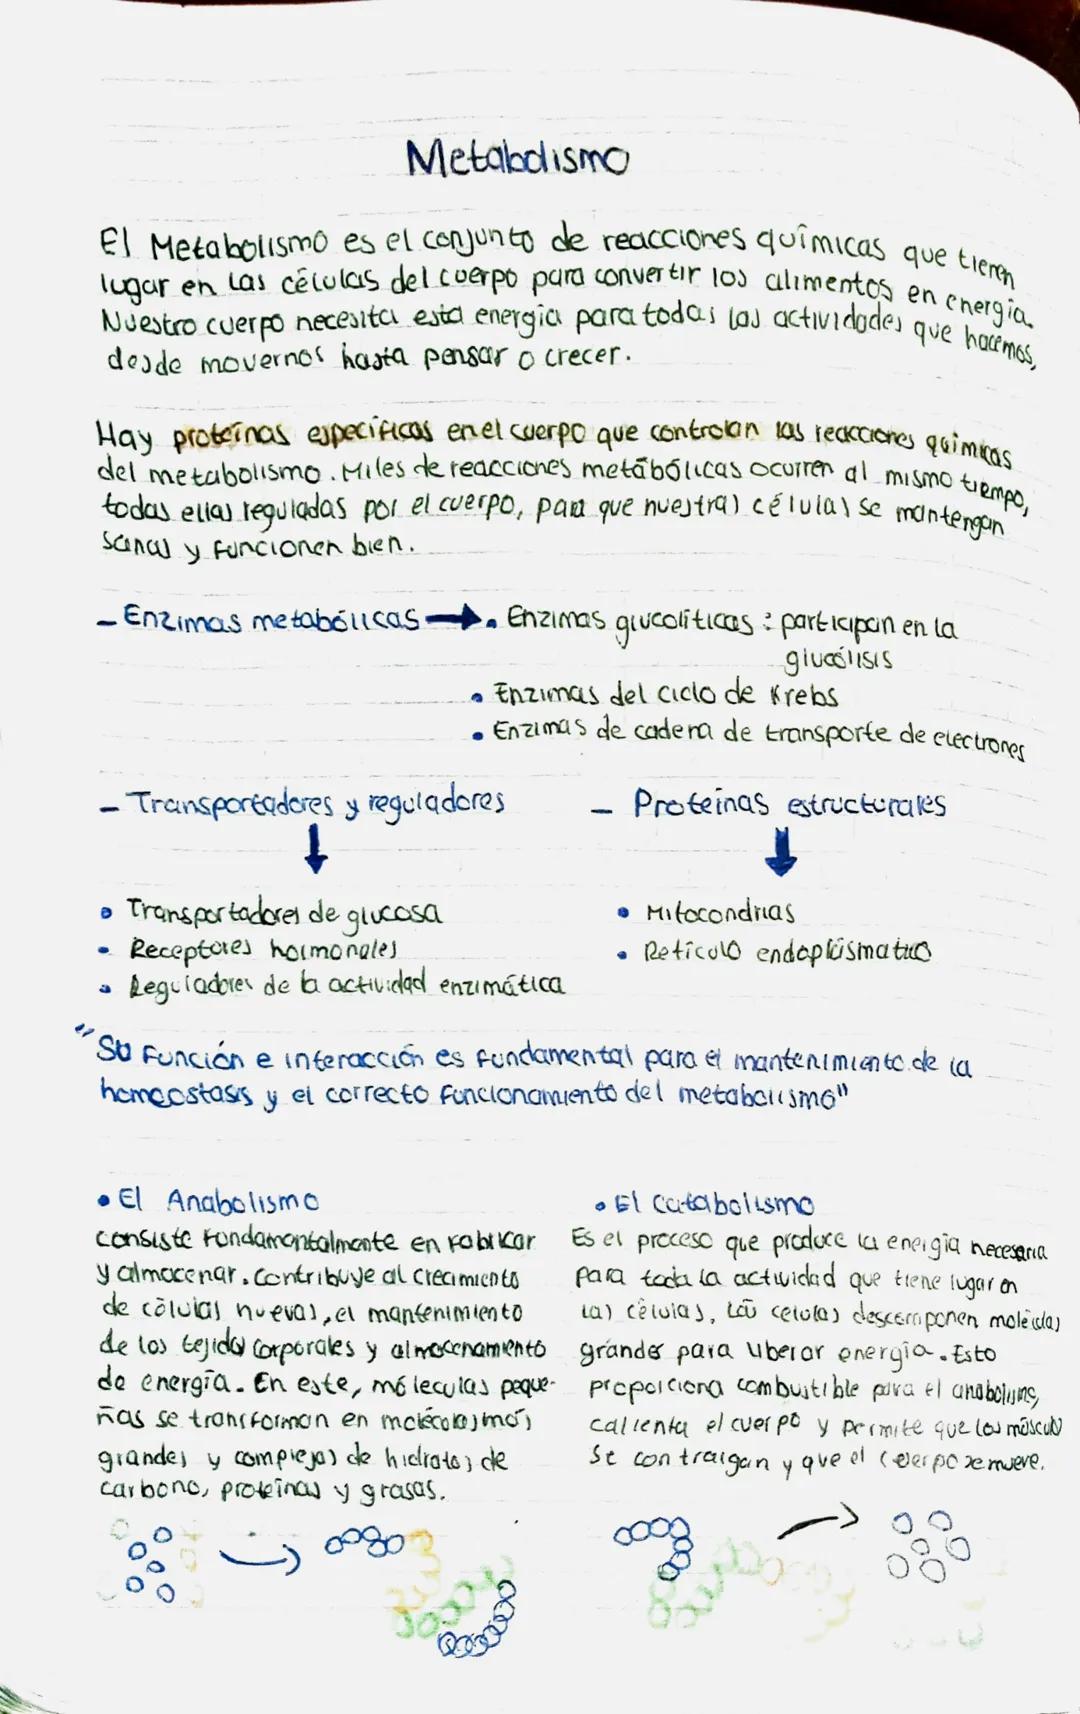 Metabolismo
El Metabolismo es el conjunto de reacciones químicas que tienen
lugar en las células del cuerpo para convertir los alimentos en energía.
Nuestro cuerpo necesita esta energía para todas las actividades que hacemos,
desde movernos hasta pensar o crecer.
Hay proteínas específicas en el cuerpo que controlan las reacciones químicas
del metabolismo. Miles de reacciones metábólicas ocurren al mismo tiempo,
todas ellas reguladas por el cuerpo, para que nuestras células se mantengan
sanas y funcionen bien.
- Enzimas metabólicas → • Enzimas glucolíticas : participan en la
glucólisis
• Enzimas del ciclo de Krebs
• Enzimas de cadena de transporte de electrones
- Transportadores y reguladores
- Proteínas estructurales
• Transportadores de glucosa
• Receptores hormonales
• Reguladores de la actividad enzimática
• Mitocondrias
• Retículo endoplásmatico
"Su función e interacción es fundamental para el mantenimiento de la
homeostasis y el correcto funcionamiento del metabolismo"
• El Anabolismo
consiste fundamentalmente en fabricar
y almacenar. Contribuye al crecimiento
de células nuevas, el mantenimiento
de los tejidos corporales y almacenamiento
de energía. En este, móleculas peque-
ñas se transforman en molécolas más
grandes y complejas de hidratos de
carbono, proteínas y grasas.
• El Catabolismo
Es el proceso que produce la energía necesaria
para toda la actividad que tiene lugar en
las células. Las celulas descomponen moléculas
grandes para liberar energía. Esto
proporciona combustible para el anabolismo,
calienta el cuerpo y permite que los músculos
se contraigan y que el cuerpo se mueve.